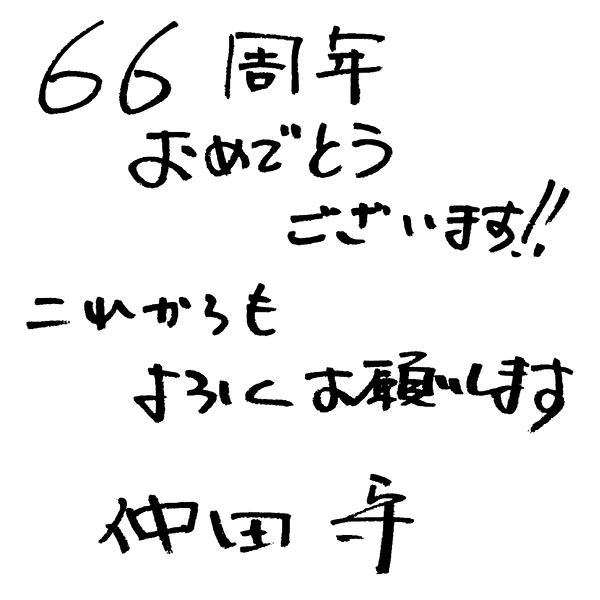 66周年
おめでとう
ございます!!
これからも
よろしくお願いします
仲田 守